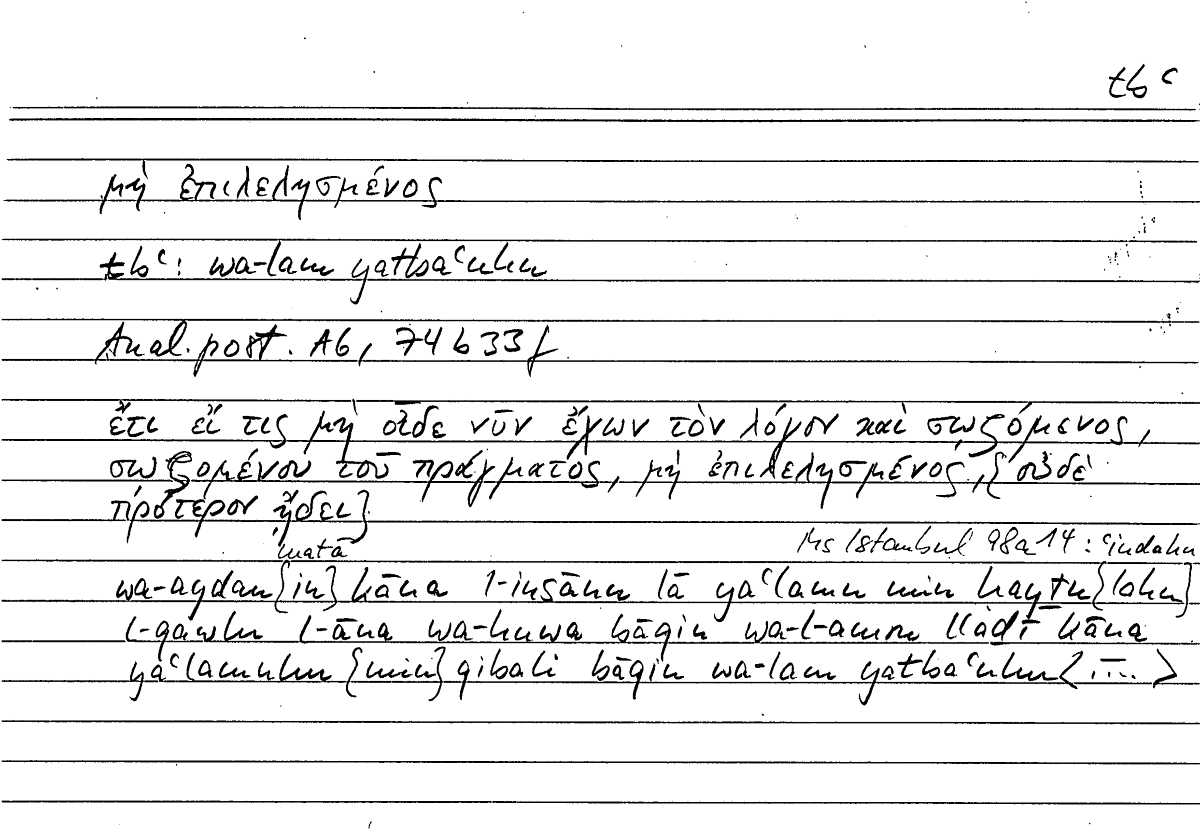 tbʿ
μὴ ἐπιλελησμένος
tbʿ: wa-lam yatbaʿuhu
Anal. post. A6, 74 b 33 f
ἔτι εἴ τις μὴ οἶδε νῦν ἔχων τὸν λόγον καὶ σῳζόμενος,
σῳζομένου τοῦ πράγματος, μὴ ἐπιλελησμένος, {οὐδὲ
πρότερον ᾔδει}
matā Ms Istanbul 98a14: ʿindahu
wa-ayḍan {in} kāna l-insānu lā yaʿlamu min ḥayṯu {lahu}
l-qawlu l-āna wa-huwa bāqin wa-l-amru llaḏī kāna
yaʿlamuhu {min} qibali bāqin wa-lam yatbaʿuhu <....>